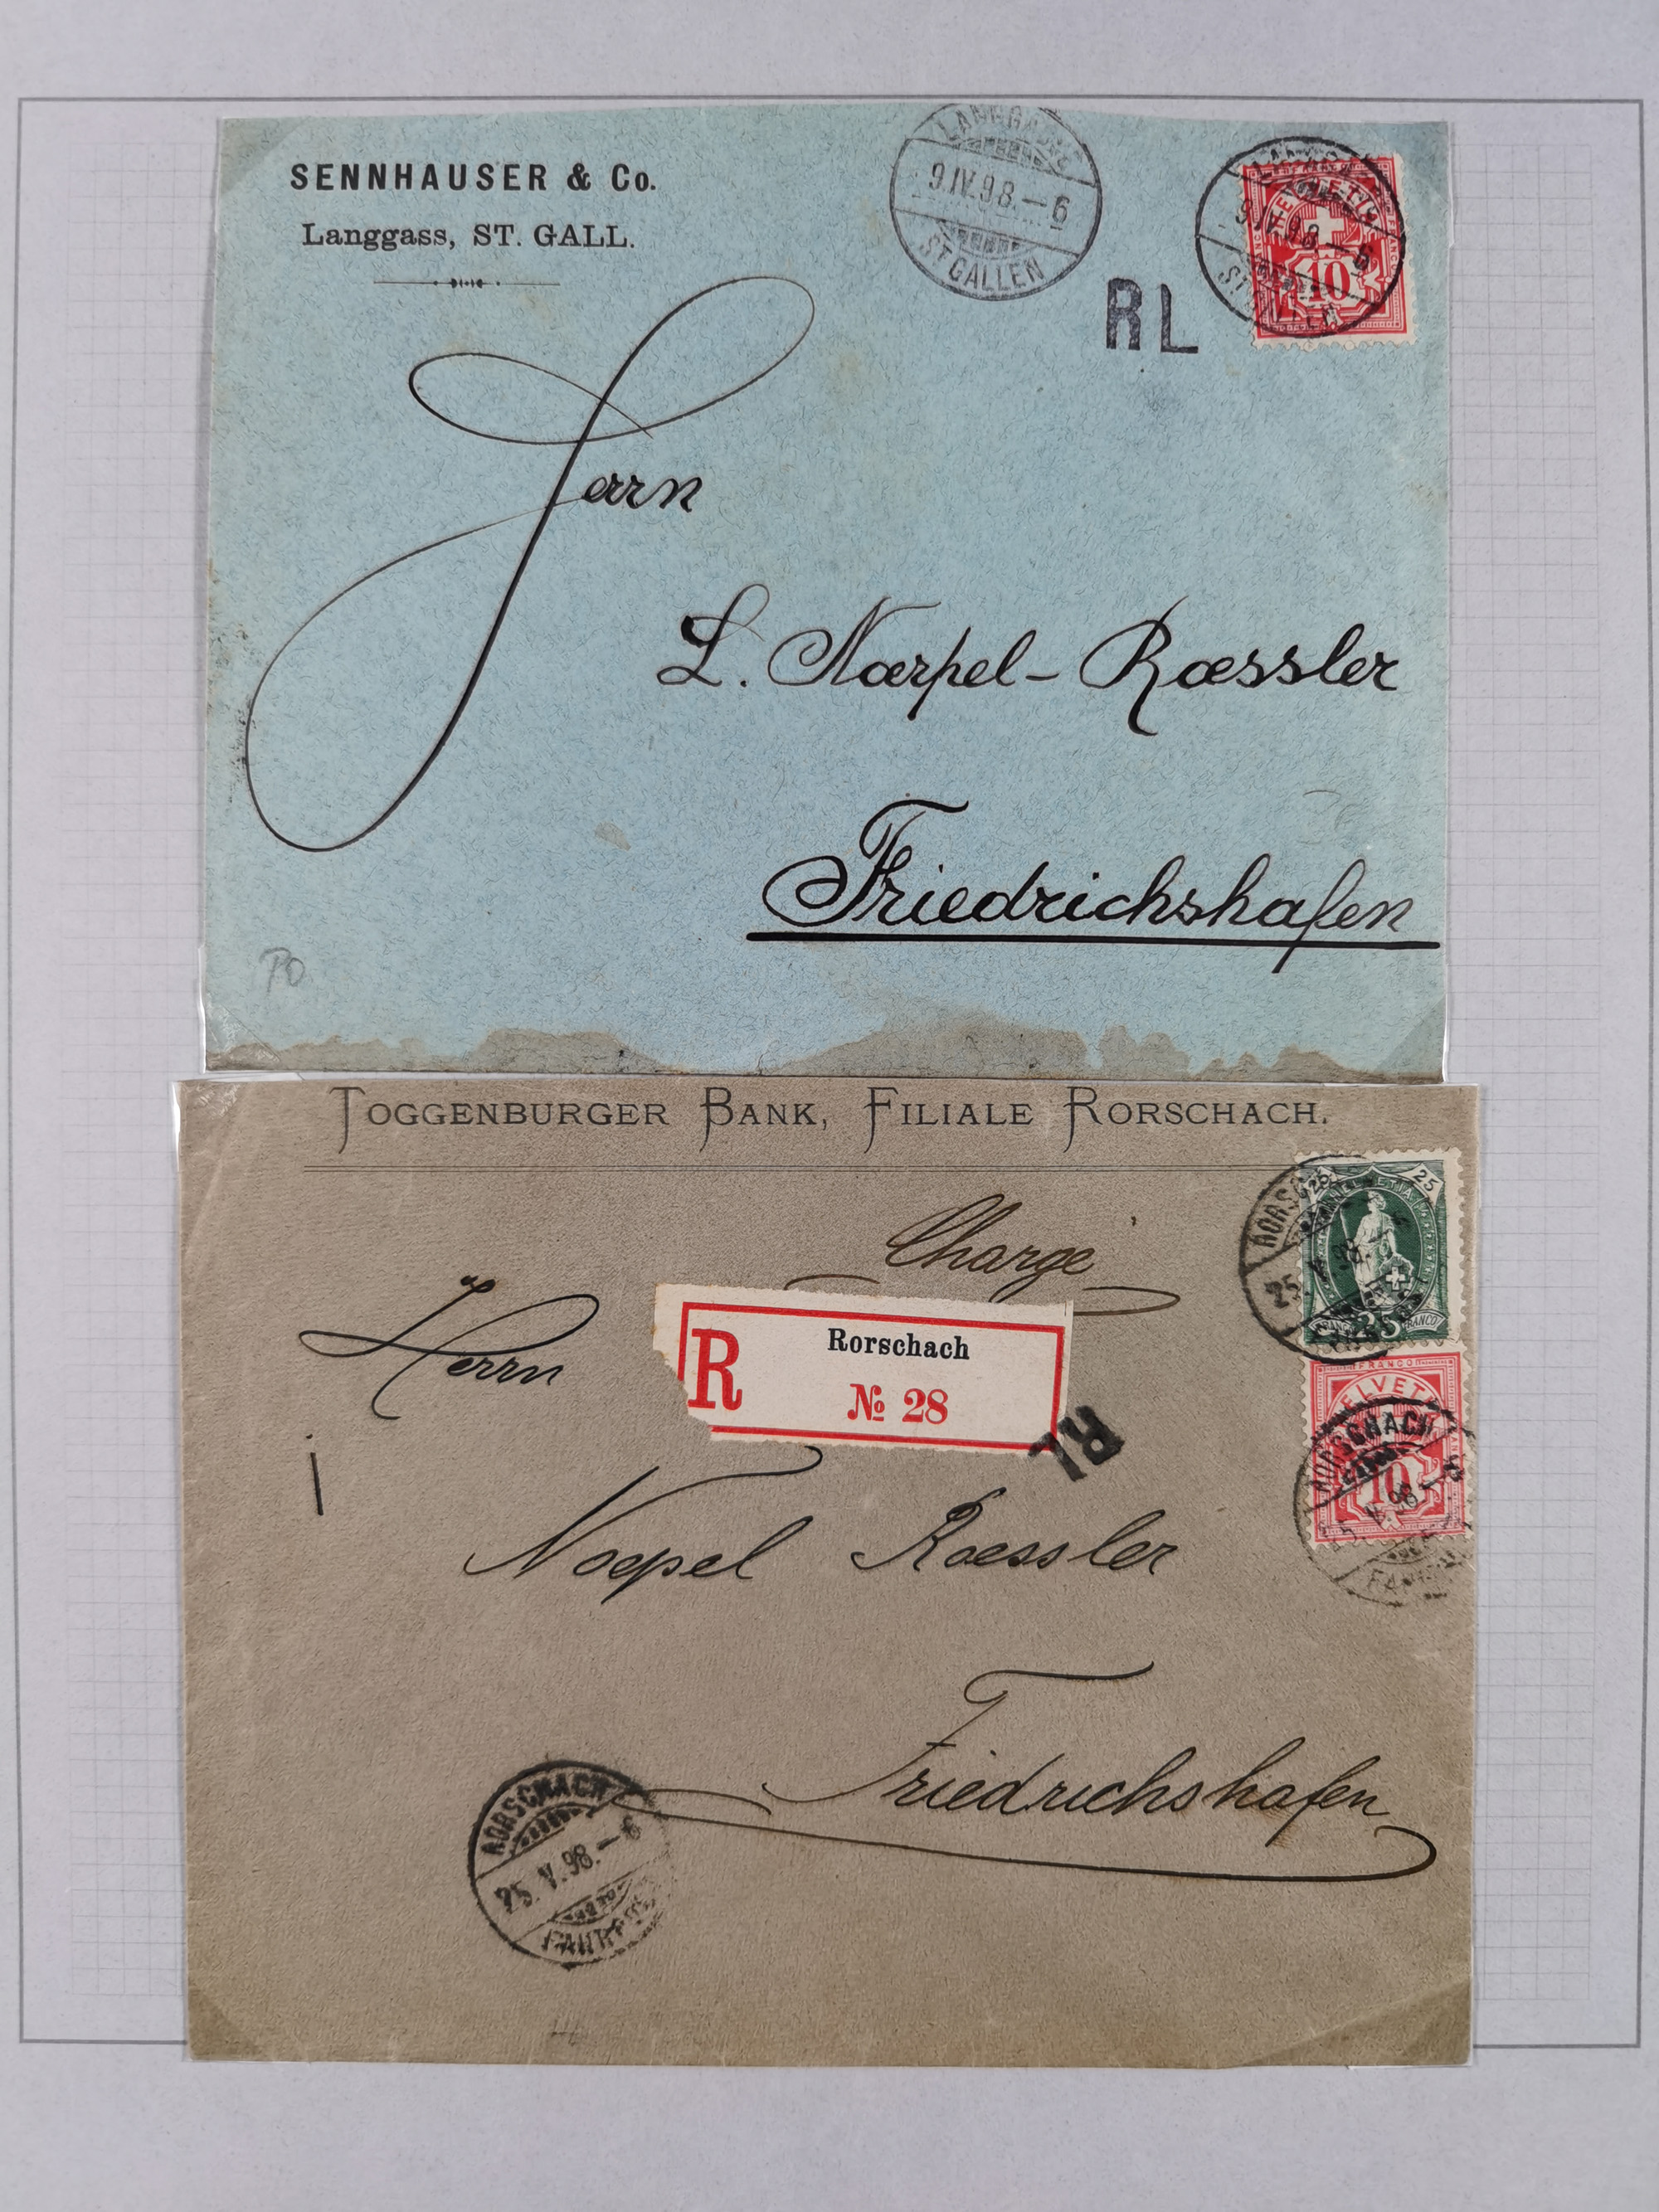 SENNHAUSER & Co.
Langgass, ST. GALL.
LANGGASS
9.IV.98.-6
ST GALLEN
RL
HELVETIA
10
Herrn
L. Noerpel-Roessler
Friedrichshafen
TOGGENBURGER BANK, FILIALE RORSCHACH.
Charge
25
25
FRANCO
Herrn
R
Rorschach
№ 28
RL
FRANCO
HELVETIA
10
RORSCHACH
Noepel Roessler
Friedrichshafen
RORSCHACH
25.V.98.-6